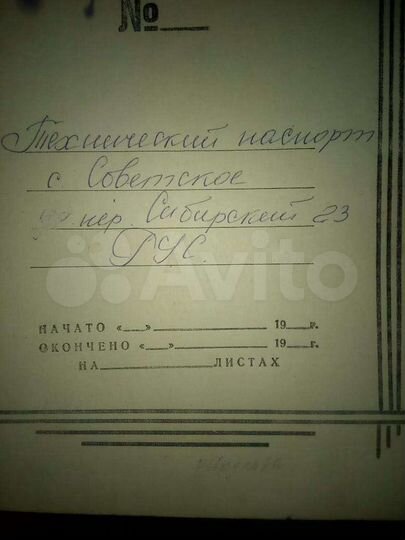 №
Технический паспорт
с Советское
пер. Сибирский 23
РУС.
Avito
НАЧАТО «__»__________ 19__г.
ОКОНЧЕНО «__»__________ 19__г.
НА__________ЛИСТАХ